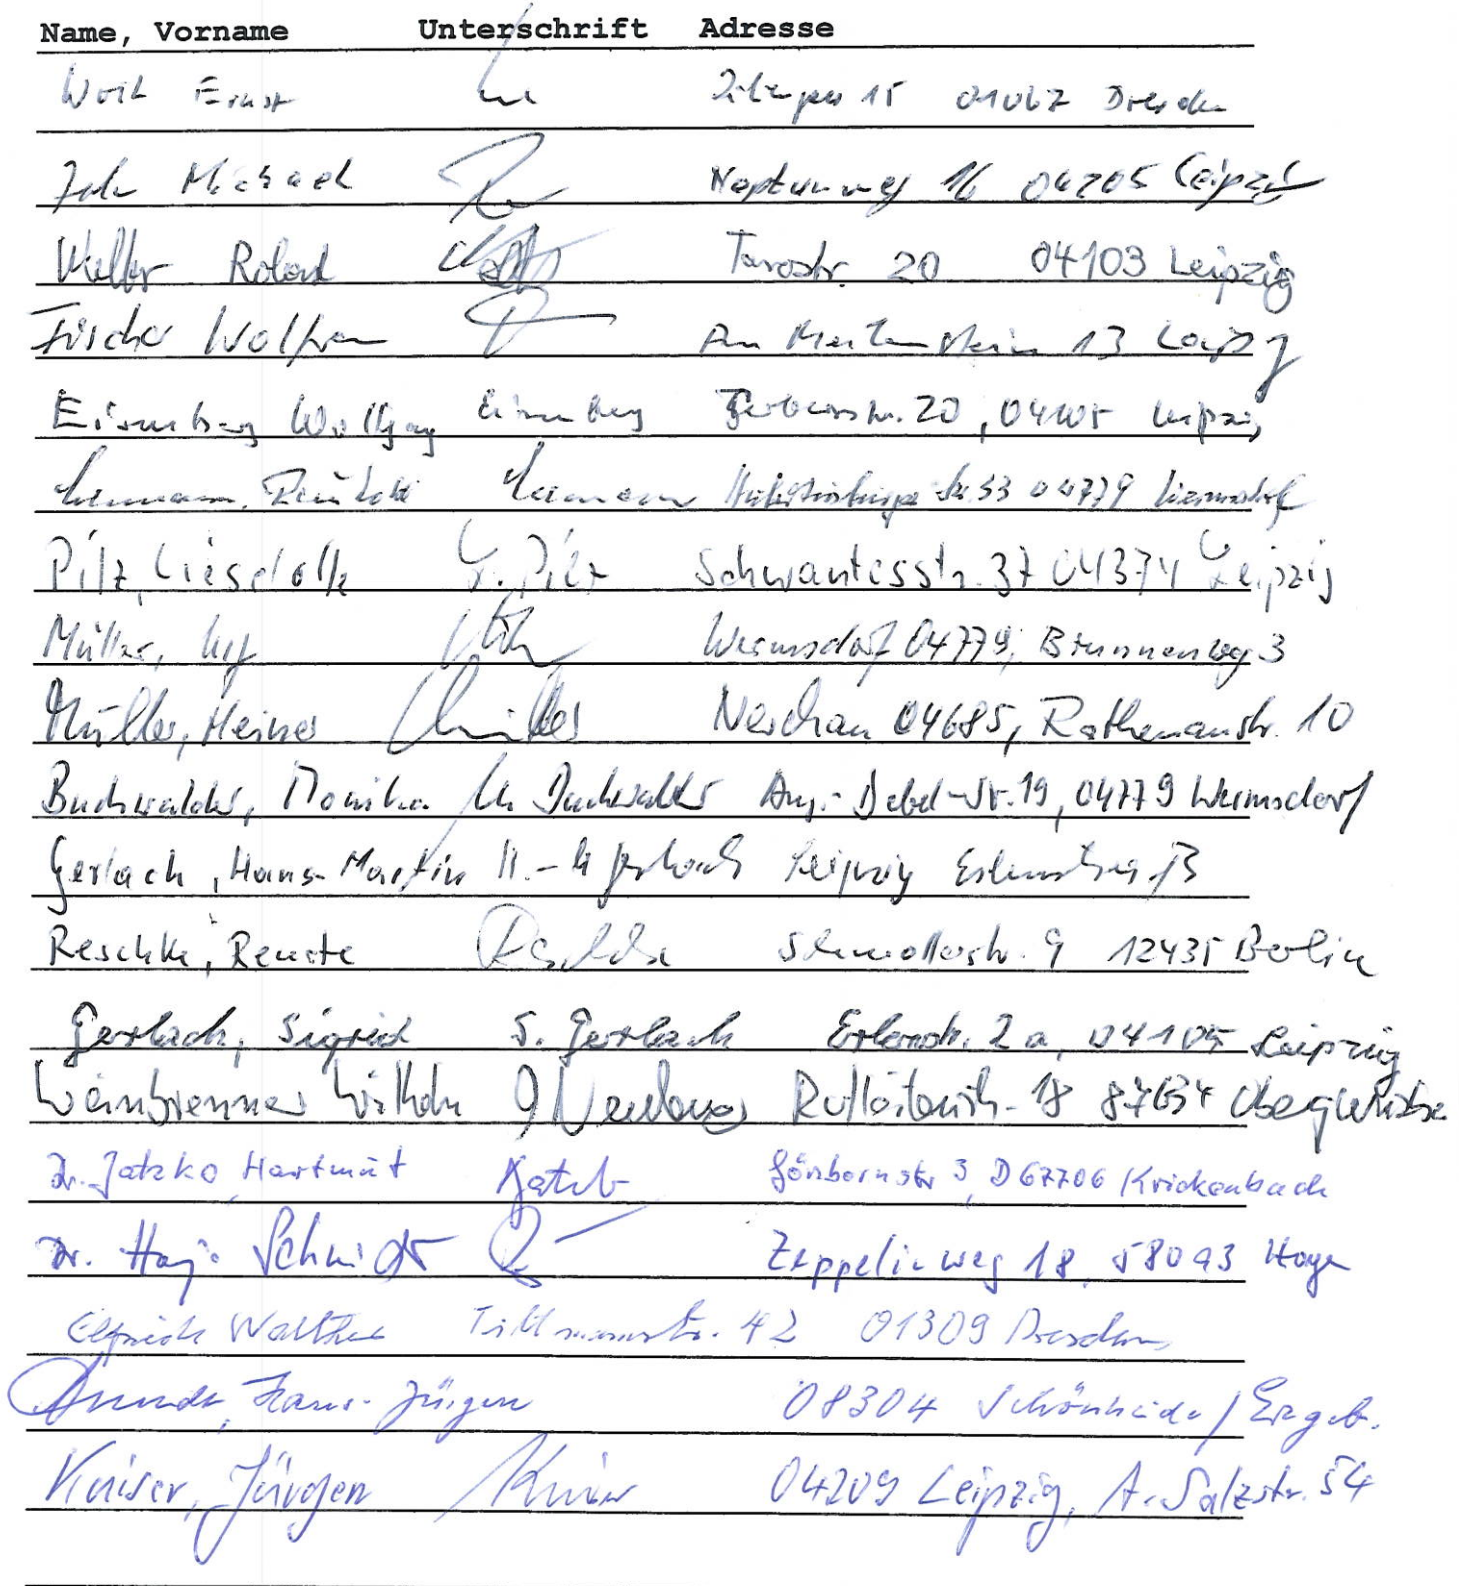 Name, Vorname Unterschrift Adresse
Ernst 15 Dresden
Michael Neptunweg 16 04205 Leipzig
Roland Tarostr. 20 04103 Leipzig
Fischer Wolfram An 13 Leipzig
Wolfgang Gerberstr. 20, 04105 Leipzig
04779 Wermsdorf
Pilz, Lieselotte L. Pilz Schwantesstr. 37 04374 Leipzig
Müller, Wermsdorf 04779, Brunnenweg 3
Müller, Heiner Müller Nerchau 04685, Rathenaustr. 10
Buchwalder, Monika M. Buchwalder Aug.-Bebel-Str. 19, 04779 Wermsdorf
Gerlach, Hans-Martin H.-M Gerlach Leipzig
Reschke, Renate Reschke Schmollerstr. 9 12435 Berlin
Gerlach, Sigrid S. Gerlach Erlenstr. 2a, 04105 Leipzig
Weinbrenner 18 87634
Dr. Jatzko, Hartmut Jatzko 3, D 67706 Krickenbach
Dr. Hajo Schmidt Zeppelinweg 18, 58093 Hagen
Elfriede Walther 42 01309 Dresden
Hans-Jürgen 08304 Schönheide/Erzgeb.
Kaiser, Jürgen Kaiser 04209 Leipzig, A.-Salzstr. 54